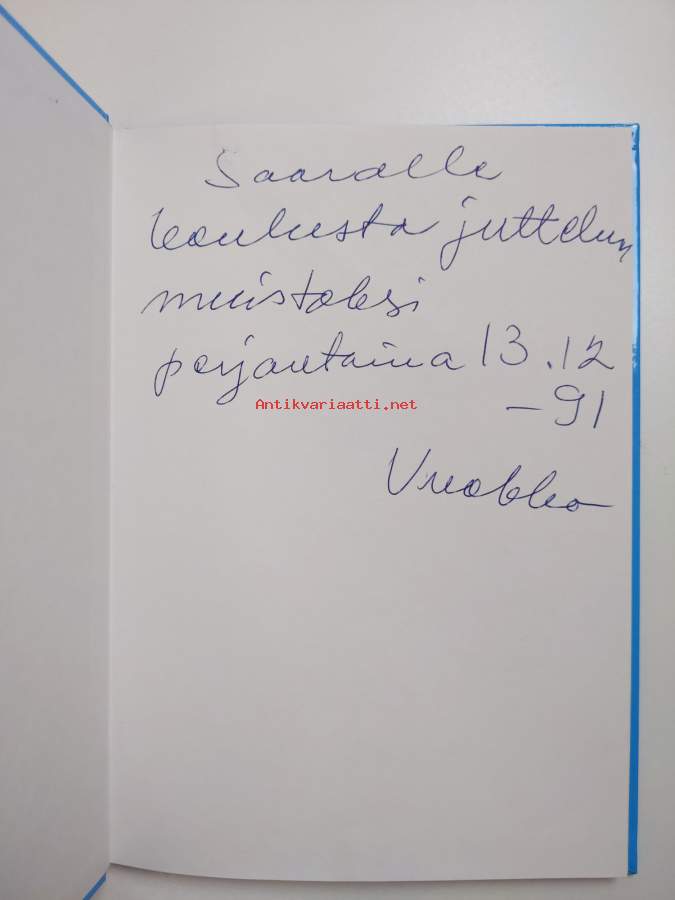 Saaralle
koulusta juttelun
muistoksi
perjantaina 13.12
-91
Antikvariaatti.net
Vuokko